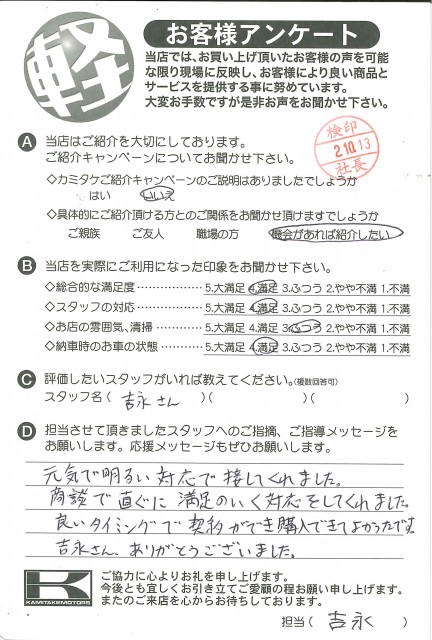 軽
お客様アンケート
当店では、お買い上げ頂いたお客様の声を可能
な限り現場に反映し、お客様により良い商品と
サービスを提供する事に努めています。
大変お手数ですが是非お声をお聞かせ下さい。
検印
2.10.13
社長
A 当店はご紹介を大切にしております。
ご紹介キャンペーンについてお聞かせ下さい。
◇カミタケご紹介キャンペーンのご説明はありましたでしょうか
はい いいえ
◇具体的にご紹介頂ける方とのご関係をお聞かせ頂けますでしょうか
ご親族 ご友人 職場の方 機会があれば紹介したい
B 当店を実際にご利用になった印象をお聞かせ下さい。
◇総合的な満足度 ……………… 5.大満足 4.満足 3.ふつう 2.やや不満 1.不満
◇スタッフの対応 ……………… 5.大満足 4.満足 3.ふつう 2.やや不満 1.不満
◇お店の雰囲気、清掃 ………… 5.大満足 4.満足 3.ふつう 2.やや不満 1.不満
◇納車時のお車の状態 ………… 5.大満足 4.満足 3.ふつう 2.やや不満 1.不満
C 評価したいスタッフがいれば教えてください。(複数回答可)
スタッフ名( 吉永さん )( )( )
D 担当させて頂きましたスタッフへのご指摘、ご指導メッセージを
お願いします。応援メッセージもぜひお願いします。
元気で明るい対応で接してくれました。
商談で直ぐに満足のいく対応をしてくれました。
良いタイミングで契約ができ購入できてよかったです。
吉永さん、ありがとうございました。
KAMITAKEMOTORS
ご協力に心よりお礼を申し上げます。
今後とも宜しくお引き立てご愛顧の程お願い申し上げます。
またのご来店を心からお待ちしております。
担当( 吉永 )